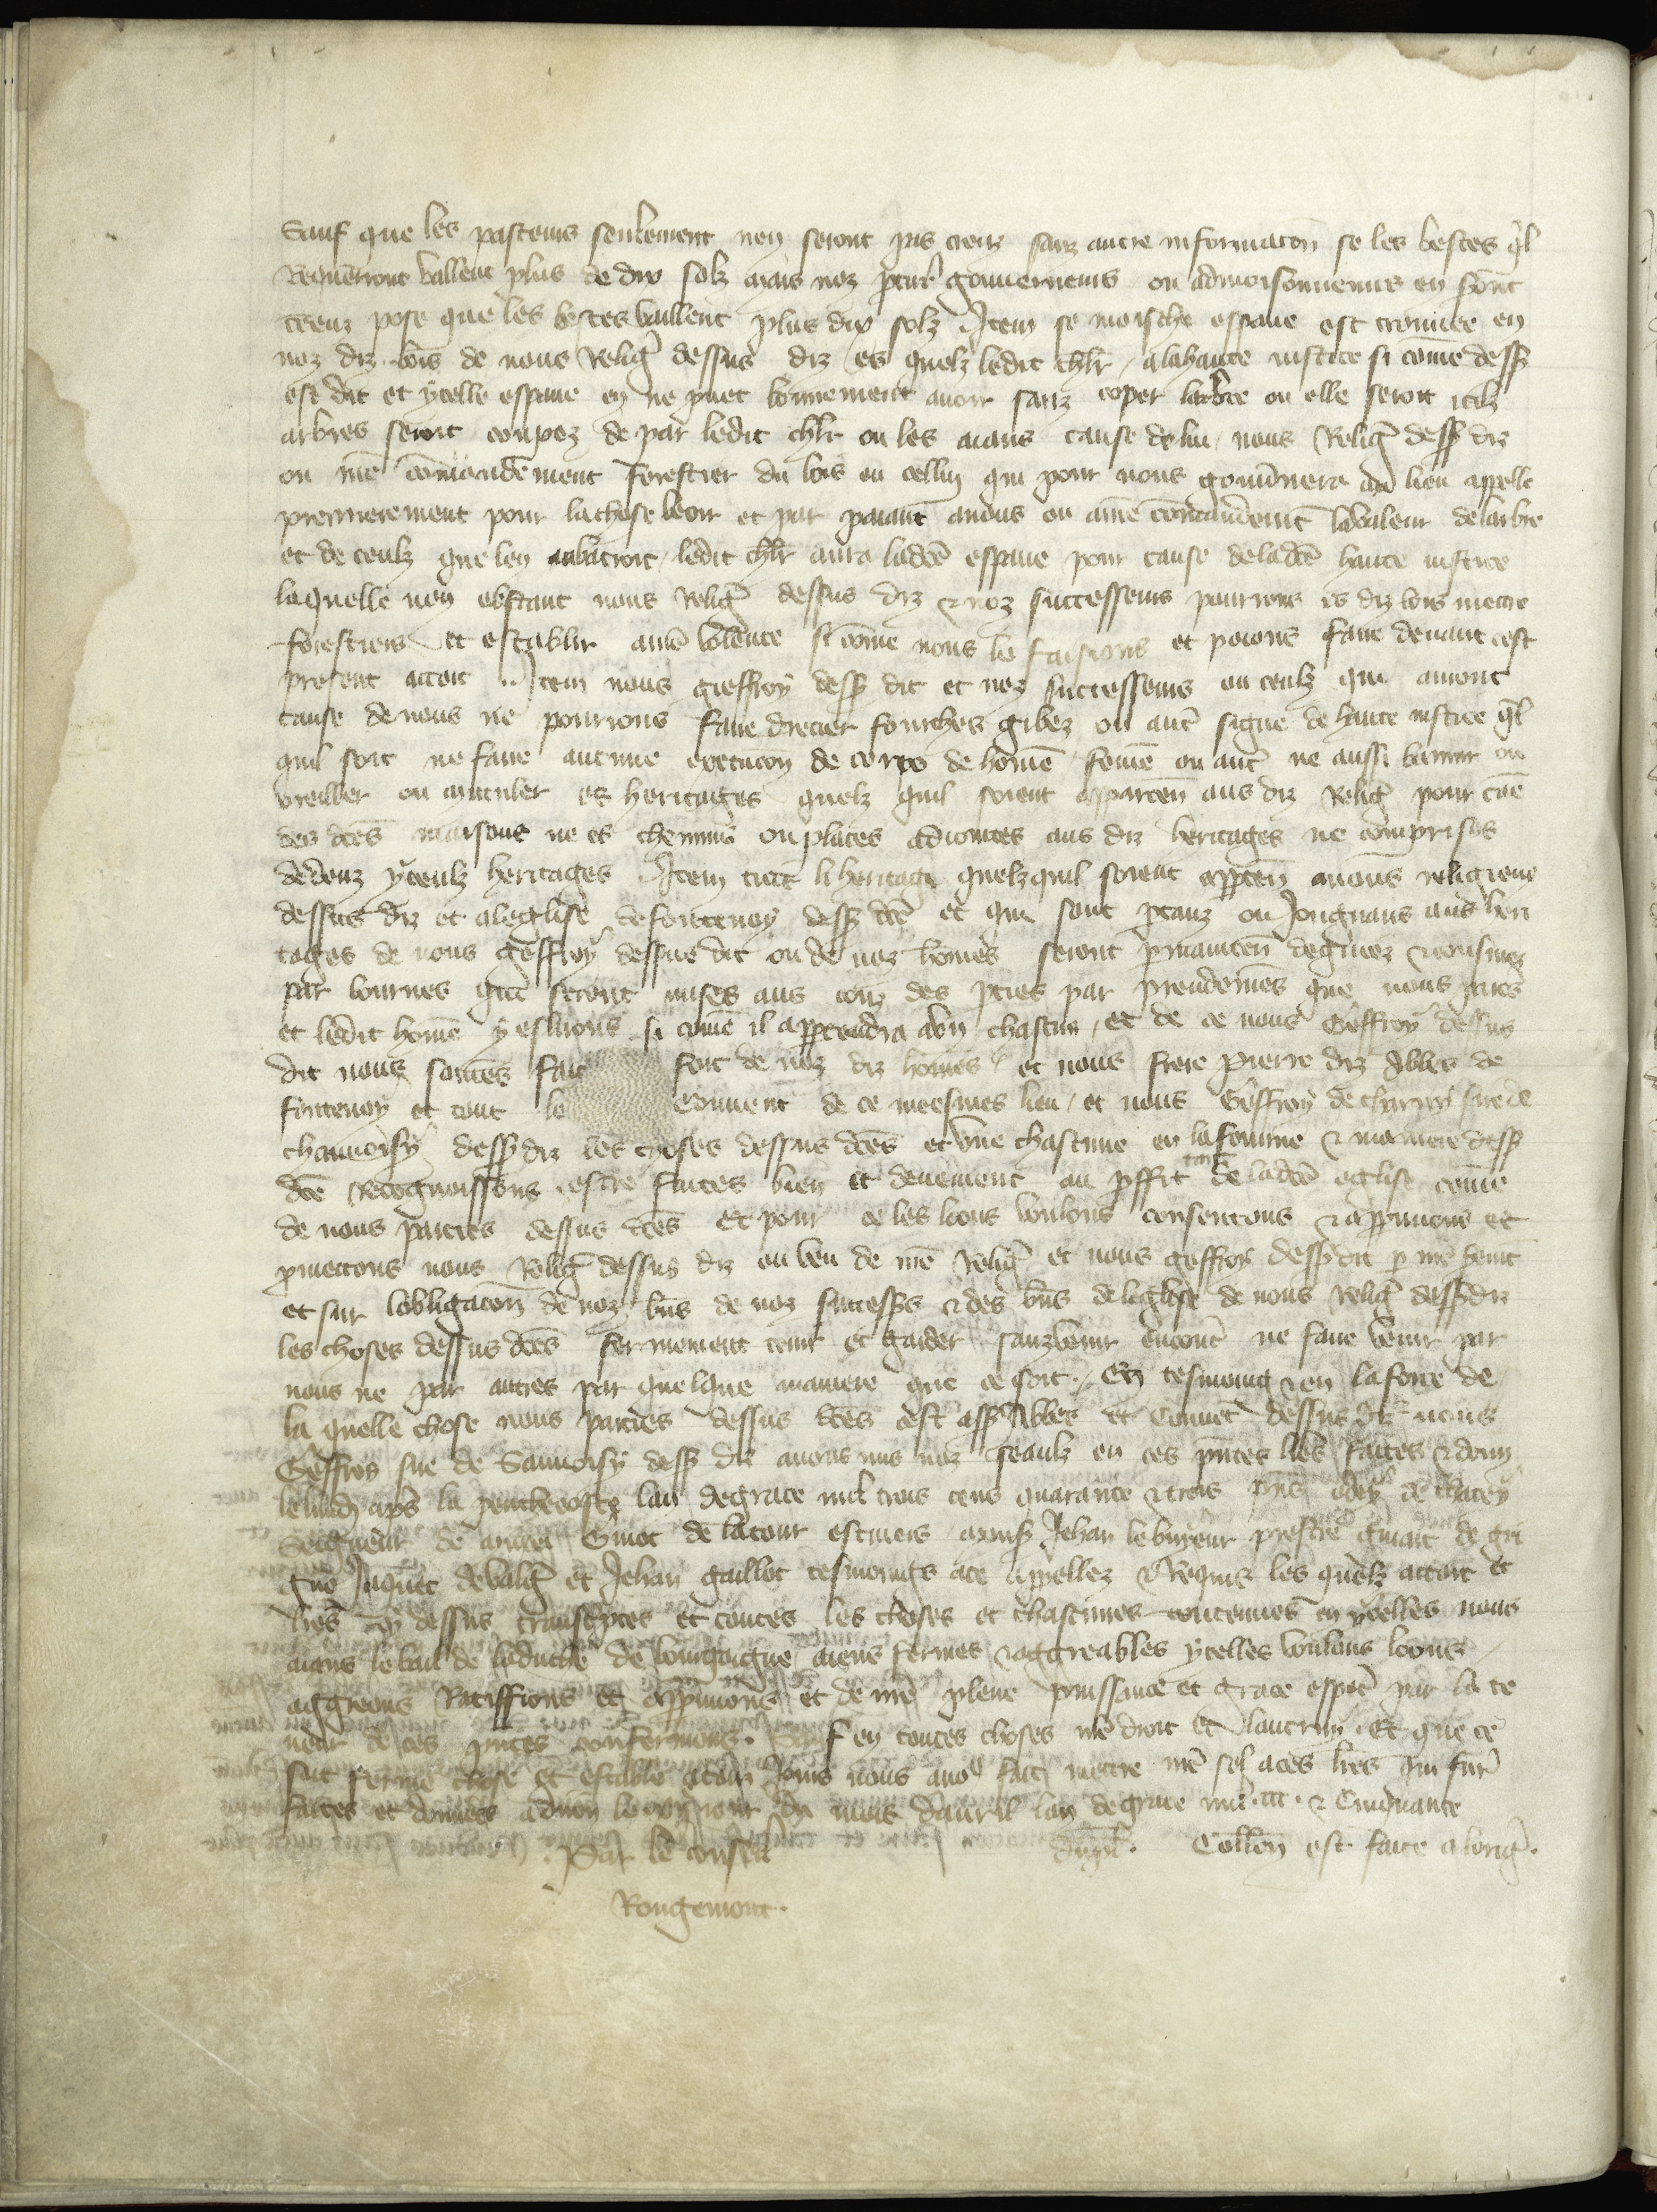 Sauf que les pasteurs seulement nen seront pas creuz sanz autre informacon se les bestes ql
Requerront vallent plus de dix solz mais noz gouverneurs ou admoisonneurs en sont
creuz pose que les bestes vaillent plus dix solz Item se moische espave est trouvee en
noz diz bois de nous Relig dessus diz es quelz ledit chlr a la haute justice si come dess
est dit et ycelle espave en ne puet bonnement avoir sanz coper larbre ou elle seroit icilz
arbres seroit coupez de par ledit chlr ou les aians cause de lui nous Relig dess diz
ou nre comandement forestier du bois ou celluy qui pour nous gouvnera ou lieu appelle
premierement pour la chose veoir et par paiant a nous ou a nre comandemt la valeur de larbre
et de ceulz que len abatroit ledit chlr aura ladce espave pour cause de ladce haute justice
laquelle non obstant nous Relig dessus diz & noz successeurs pourrons es diz bois mettre
forestiers et establir a nre volente si come nous le faisions et poions faire devant cest
present accort Item nous gieffroy dess dit et noz successeurs ou ceulz qui auront
cause de nous ne pourrons faire drecier fourches gibez ou autre signe de haute justice ql
quil soit ne faire aucune execucon de corps de home feme ou autre ne aussi bannir ou
oreiller ou mutuler es heritages quelz quil soient apparten aus diz Relig pour cae
des dces maisons ne es chemins ou places adjointes aus diz heritages ne comprises
dedenz yceulz heritages Item tuit li heritage quelzquil soient apparten a nous religieus
dessus diz et a leglise de fontenoy dess dce et qui sont ou joignans aus heri
tages de nous geffroy dessus dit ou de noz homes seront
par bournes qui seront mises aus des pties par preudomes que nous pties
et ledit home y eslirons si come il appartendra a un chascun et de ce nous Geffroy dessus
dit nous somes fait fort de noz diz homes et nous frere Pierre diz Abbes de
fontenoy et tout le Couvent de ce meesmes lieu et nous Geffroy de charny sire de
chauvoisy dess diz les choses dessus dces et une chascune en la forme & maniere dess
dce Recognoissons estre faites bien et deuement au pffit tant de ladce eglise come
de nous parties dessus dces Et pour ce les loons voulons consentons & appvuons et
pmettons nous Relig dessus diz ou veu de nre Relig et nous geffroy dess dit p nre
et sur lobligacon de noz bns de noz success & des bns de leglise de nous relig dess diz
les choses dessus dces fermement tenir et garder sanz venir encontre ne faire venir par
nous ne par autres par quelque maniere que ce soit. En tesmoing & en la force de
la quelle chose nous parties dessus dces cest ass Abbes et Couvet dessus diz nous
Geffroy sire de Sauvoisy dess diz avons mis noz seaulz en ces pntes lres faites & donn
le lundi aps la penthecoste lan de grace mil trois cens quarante & trois pns de chacey
Seigneur de Guiot de latour escuiers Jehan le prestre de gri
gno Jaquet de et Jehan gaillot tesmoings a ce appellez & Requis les quelz accort et
lres cy dessus transcptes et toutes les choses et chascunes contenues en ycelles nous
aians le bail de la duchie de bourgoigne aiens fermes & aggreables ycelles voulons loons
aggreons Ratiffions et appruvons et de nre plene puissance et grace espec par la te
neur de ces pntes confermons. Sauf en toutes choses nre droit et lautruy. Et que ce
soit ferme chose et estable a touz jours nous avo fait mettre nre sel a ces lres qui furet
faites et donnees a dijon le jour du mois davril lan de grace mil. ccc. & Cinquante
Par le conseil Collon est faite a lorig.
Rougemont.